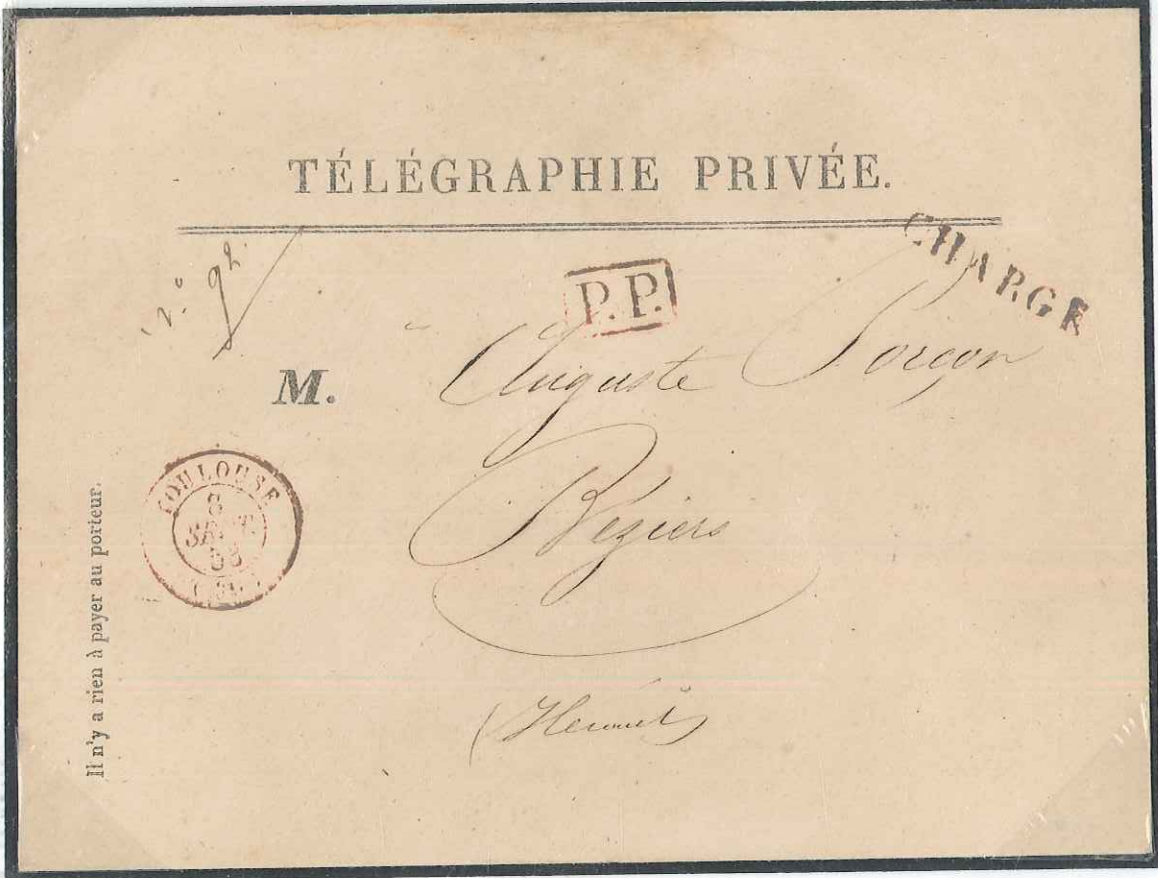 TÉLÉGRAPHIE PRIVÉE.
CHARGÉ
N.° 92.
P.P.
M. Auguste Porçon
Beziers
TOULOUSE
8
SEPT.
(30)
(Herault)
Il n'y a rien à payer au porteur.